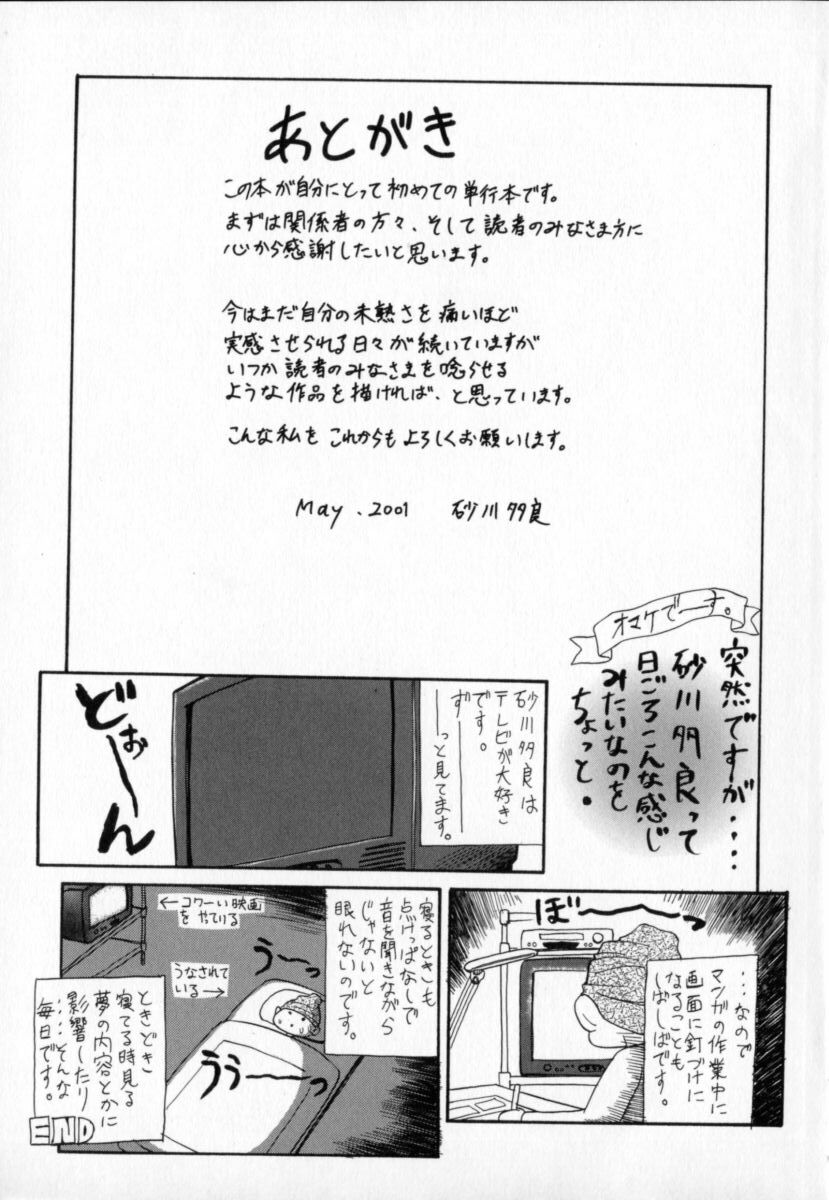 あとがき
この本が自分にとって初めての単行本です。
まずは関係者の方々、そして読者のみなさま方に
心から感謝したいと思います。
今はまだ自分の未熟さを痛いほど
実感させられる日々が続いていますが
いつか読者のみなさまを唸らせる
ような作品を描ければ、と思っています。
こんな私をこれからもよろしくお願いします。
May.2001 砂川多良
オマケでーす。
突然ですが‥‥
砂川多良って
日ごろこんな感じ
みたいなのを
ちょっと。
砂川多良は
テレビが大好き
です。
ず———
—っと見てます。
どぉーーん
…なので
マンガの作業中に
画面に釘づけに
なることも
しばしばです。
ぼーーっ
寝るときも
点けっぱなしで
音を聞きながら
じゃないと
眠れないのです。
←コワーい映画
をやている
うなされて
いる→
うーーっ
うぅーーっ
ときどき
寝てる時見る
夢の内容とかに
影響したり
‥‥そんな
毎日です。
END